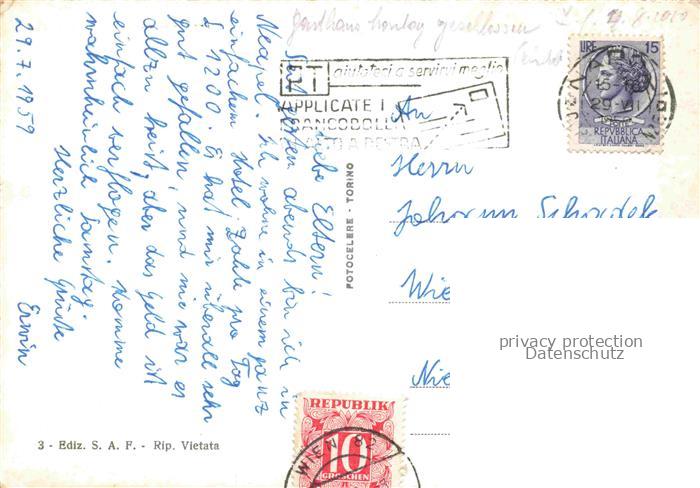 29.7.1959
Liebe Eltern!
Seit gestern abends bin ich in
Neapel. Ich wohne in einem ganz
einfachen Hotel, Zahle pro Tag
1200. Es hat mir überall sehr
gut gefallen, und nie war es
allzu heiß, aber das Geld ist
einfach verflogen. Komme
wahrscheinlich Samstag.
Herzliche Grüße
Erwin
FOTOCELERE - TORINO
3 - Ediz. S. A. F. - Rip. Vietata
Gasthaus
geschlossen
PT
aiutateci a servirvi meglio
APPLICATE I
FRANCOBOLLI
LIRE 15
29-VII
REPVBBLICA
ITALIANA
An
Herrn
Johann
Wie
Nie
privacy protection
Datenschutz
REPUBLIK
10
GROSCHEN
WIEN 82